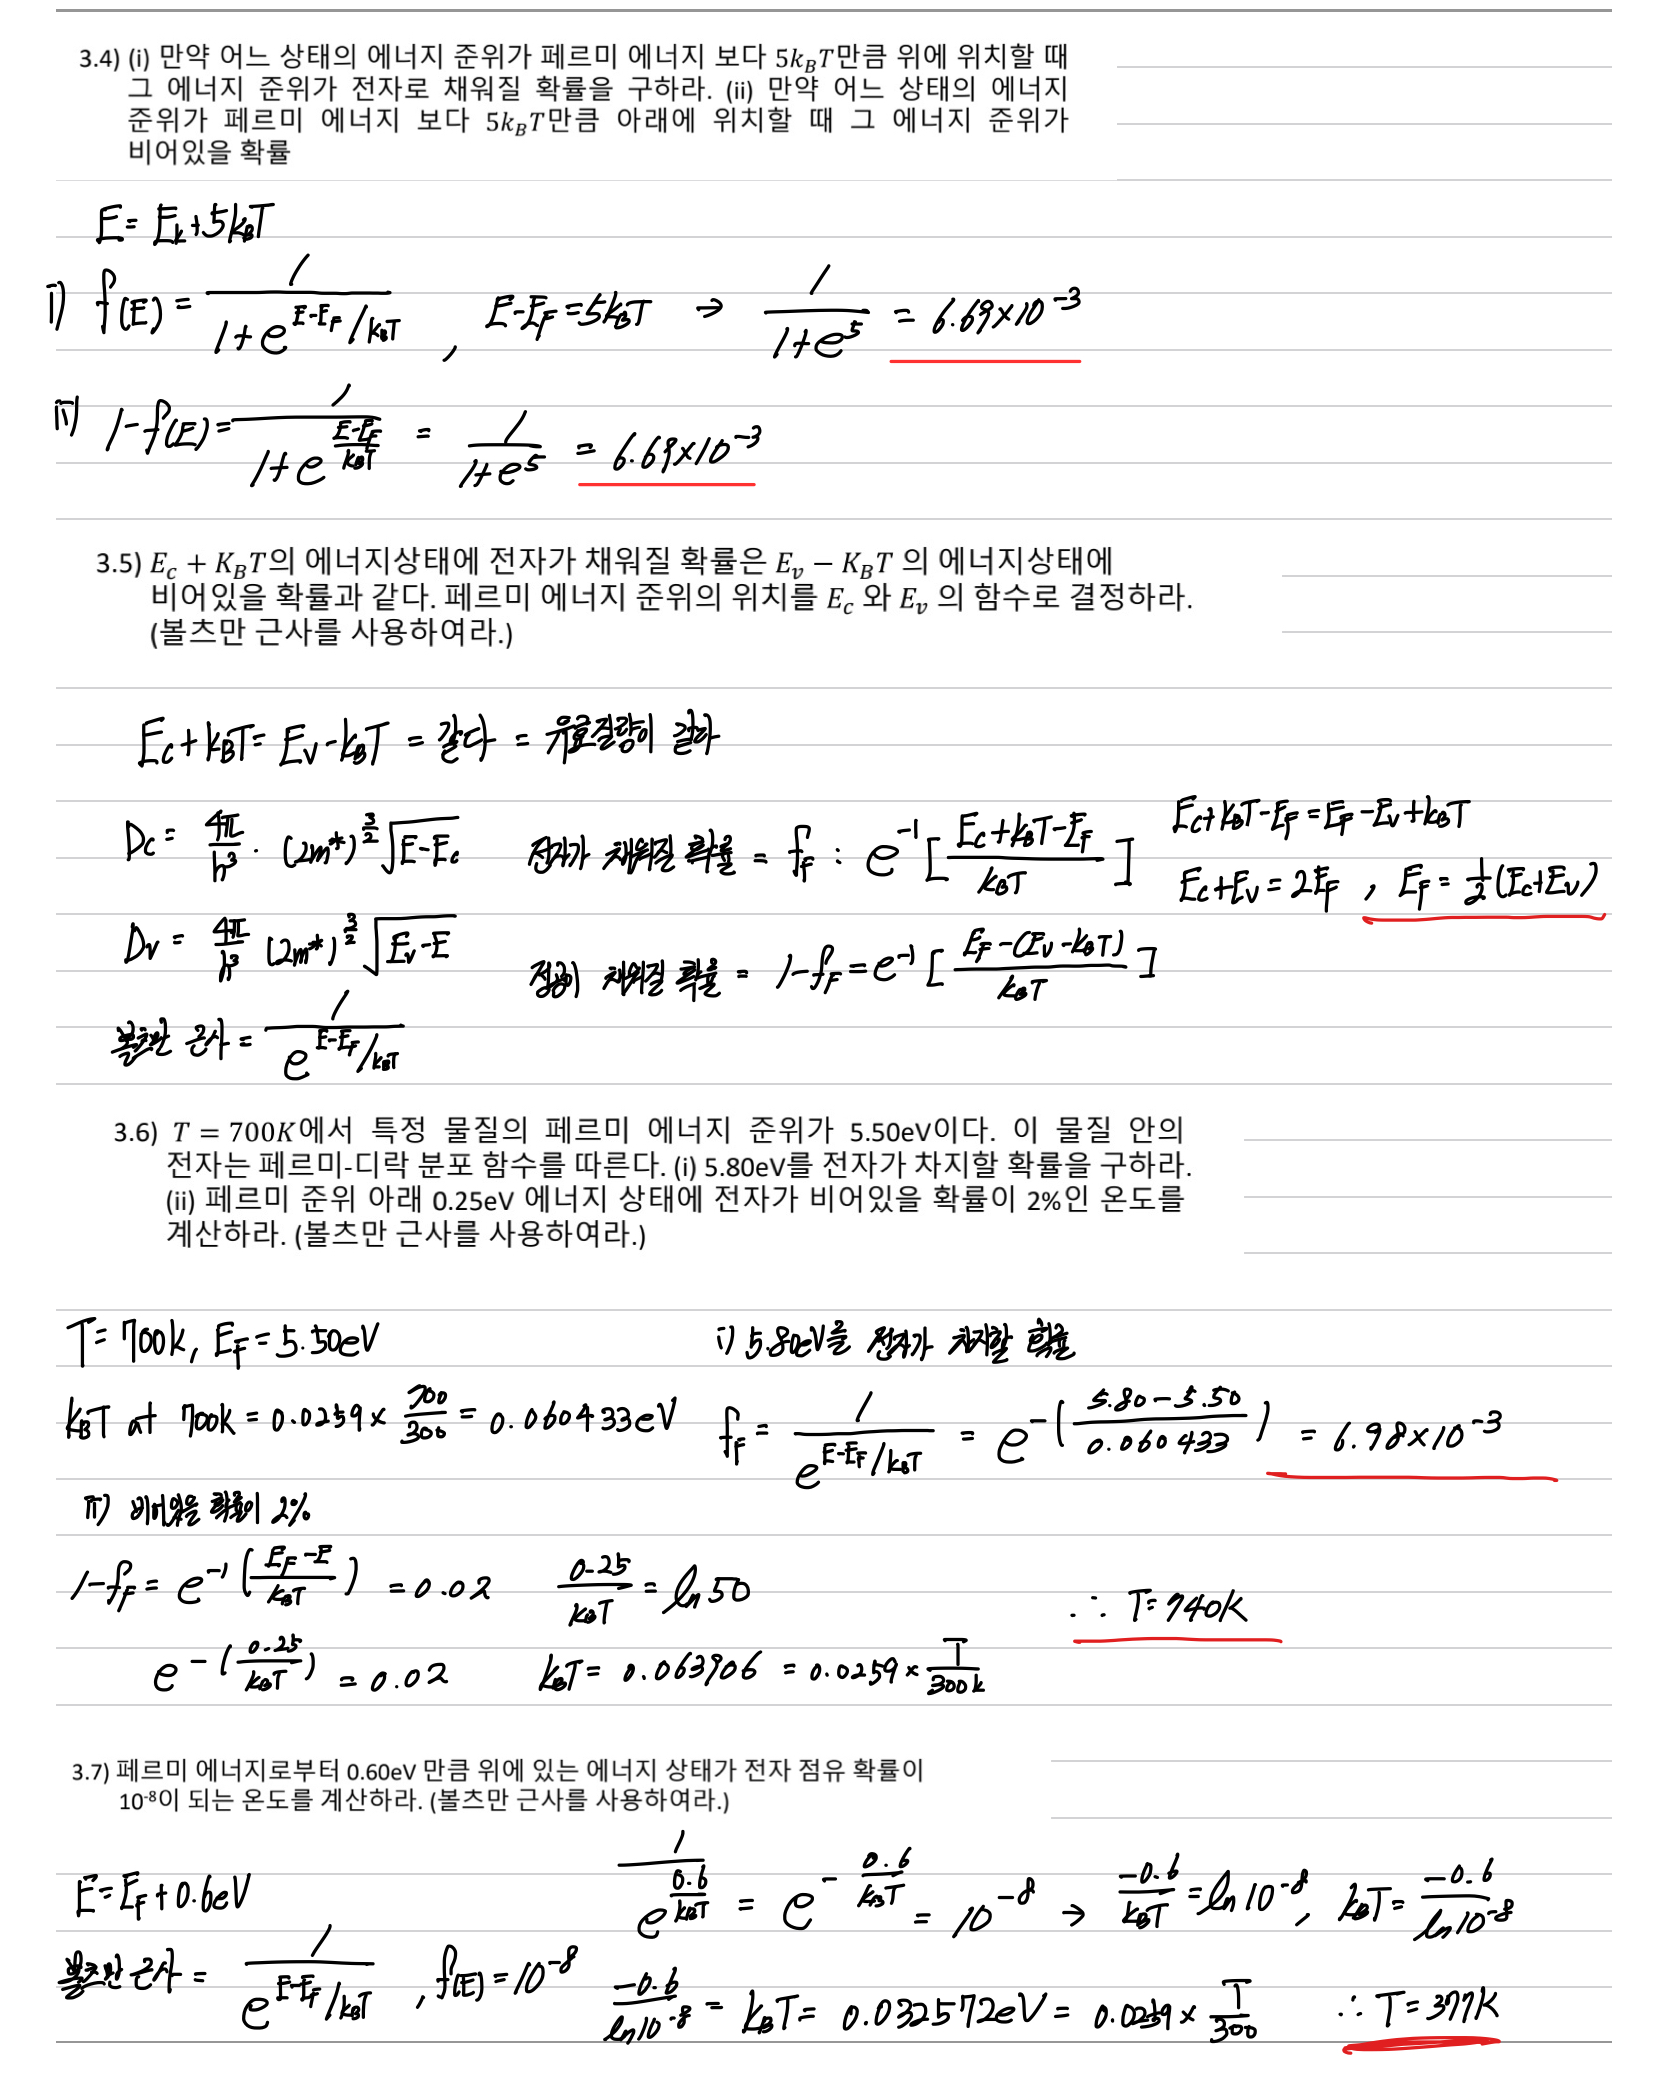 3.4) (i) 만약 어느 상태의 에너지 준위가 페르미 에너지 보다 5k_BT만큼 위에 위치할 때
그 에너지 준위가 전자로 채워질 확률을 구하라. (ii) 만약 어느 상태의 에너지
준위가 페르미 에너지 보다 5k_BT만큼 아래에 위치할 때 그 에너지 준위가
비어있을 확률
E = E_k + 5k_BT
i) f(E) = 1 / (1 + e^(E-E_F/k_BT)) , E-E_F = 5k_BT → 1 / (1+e^5) = 6.69×10^-3
ii) 1-f(E) = 1 / (1 + e^((E-E_F)/k_BT)) = 1 / (1+e^5) = 6.69×10^-3
3.5) E_c + K_BT의 에너지상태에 전자가 채워질 확률은 E_v − K_BT 의 에너지상태에
비어있을 확률과 같다. 페르미 에너지 준위의 위치를 E_c 와 E_v 의 함수로 결정하라.
(볼츠만 근사를 사용하여라.)
E_c + k_BT = E_v - k_BT = 같다 = 유효질량이 같다
D_c = 4π/h^3 · (2m*)^(3/2) √(E-E_c)
전자가 채워질 확률 = f_F : e^-1 [ (E_c+k_BT-E_F) / k_BT ]
E_c+k_BT-E_F = E_F-E_v+k_BT
E_c+E_v = 2E_F , E_F = 1/2 (E_c+E_v)
D_v = 4π/h^3 (2m*)^(3/2) √(E_v-E)
정공이 채워질 확률 = 1-f_F = e^-1 [ (E_F-(E_v-k_BT)) / k_BT ]
볼츠만 근사 = 1 / e^(E-E_F/k_BT)
3.6) T = 700K에서 특정 물질의 페르미 에너지 준위가 5.50eV이다. 이 물질 안의
전자는 페르미-디락 분포 함수를 따른다. (i) 5.80eV를 전자가 차지할 확률을 구하라.
(ii) 페르미 준위 아래 0.25eV 에너지 상태에 전자가 비어있을 확률이 2%인 온도를
계산하라. (볼츠만 근사를 사용하여라.)
T = 700K, E_F = 5.50eV
k_BT at 700K = 0.0259 × 700/300 = 0.060433eV
i) 5.80eV를 전자가 차지할 확률
f_F = 1 / e^(E-E_F/k_BT) = e^-((5.80-5.50)/0.060433) = 6.98×10^-3
ii) 비어있을 확률이 2%
1-f_F = e^-1 ((E_F-E)/k_BT) = 0.02
e^-(0.25/k_BT) = 0.02
0.25/k_BT = ln 50
k_BT = 0.063906 = 0.0259 × T/300K
∴ T = 740K
3.7) 페르미 에너지로부터 0.60eV 만큼 위에 있는 에너지 상태가 전자 점유 확률이
10^-8이 되는 온도를 계산하라. (볼츠만 근사를 사용하여라.)
E = E_F + 0.6eV
볼츠만 근사 = 1 / e^(E-E_F/k_BT) , f(E) = 10^-8
1 / e^(0.6/k_BT) = e^-(0.6/k_BT) = 10^-8 → -0.6/k_BT = ln10^-8, k_BT = -0.6/ln10^-8
-0.6/ln10^-8 = k_BT = 0.032572eV = 0.0259 × T/300 ∴ T = 377K